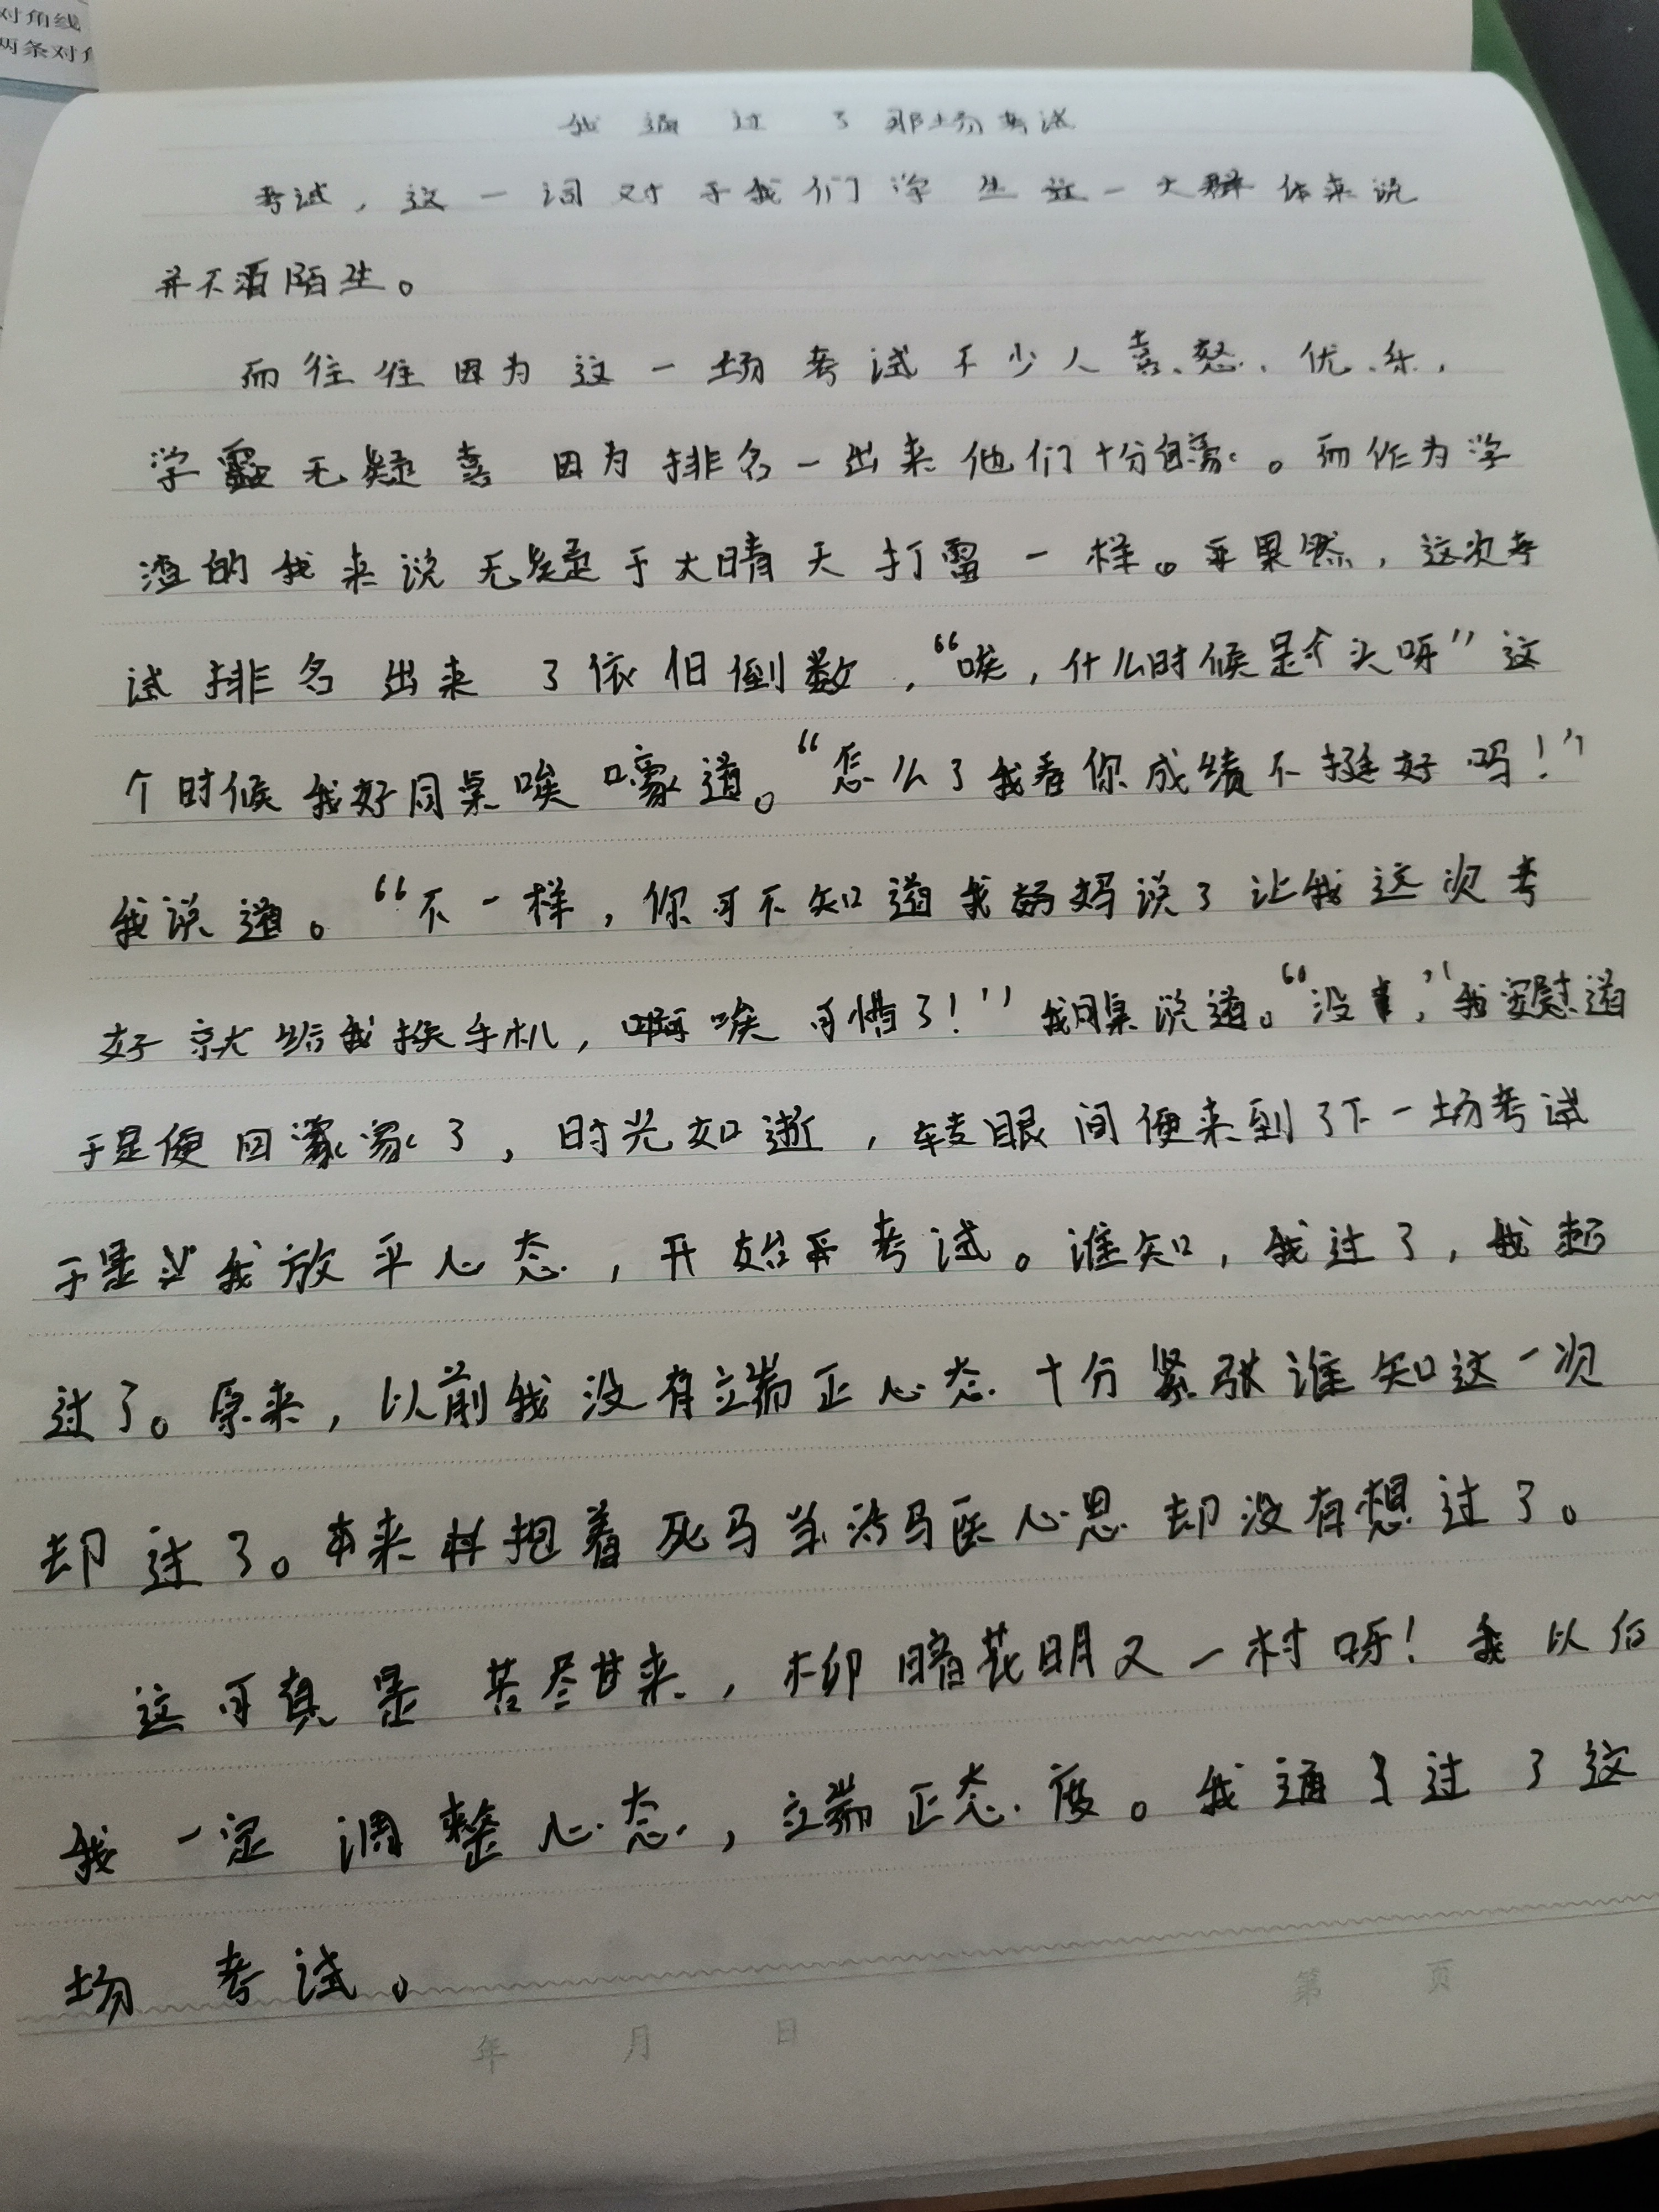 对角线
两条对角
我通过了那场考试
考试，这一词对于我们学生这一大群体来说
并不陌生。
而往往因为这一场考试不少人喜、怒、优、乐，
学霸无疑喜 因为排名一出来他们十分自豪。而作为学
渣的我来说无疑于大晴天打雷一样。果然，这次考
试排名出来了依旧倒数，“唉，什么时候是个头呀”这
个时候我好同桌唉嚎道。“怎么了我看你成绩不挺好吗！”
我说道。“不一样，你可不知道我妈妈说了让我这次考
好就给我换手机，啊唉可惜了！”我同桌说道。“没事，”我安慰道
于是便回家了，时光如逝，转眼间便来到了下一场考试
于是我放平心态，开始考试。谁知，我过了，我超
过了。原来，以前我没有端正心态十分紧张谁知这一次
却过了。本来抱着死马当活马医心思却没有想过了。
这可真是苦尽甘来，柳暗花明又一村呀！我以后
我一定调整心态，端正态度。我通过了这
场考试。
年 月 日
第 页